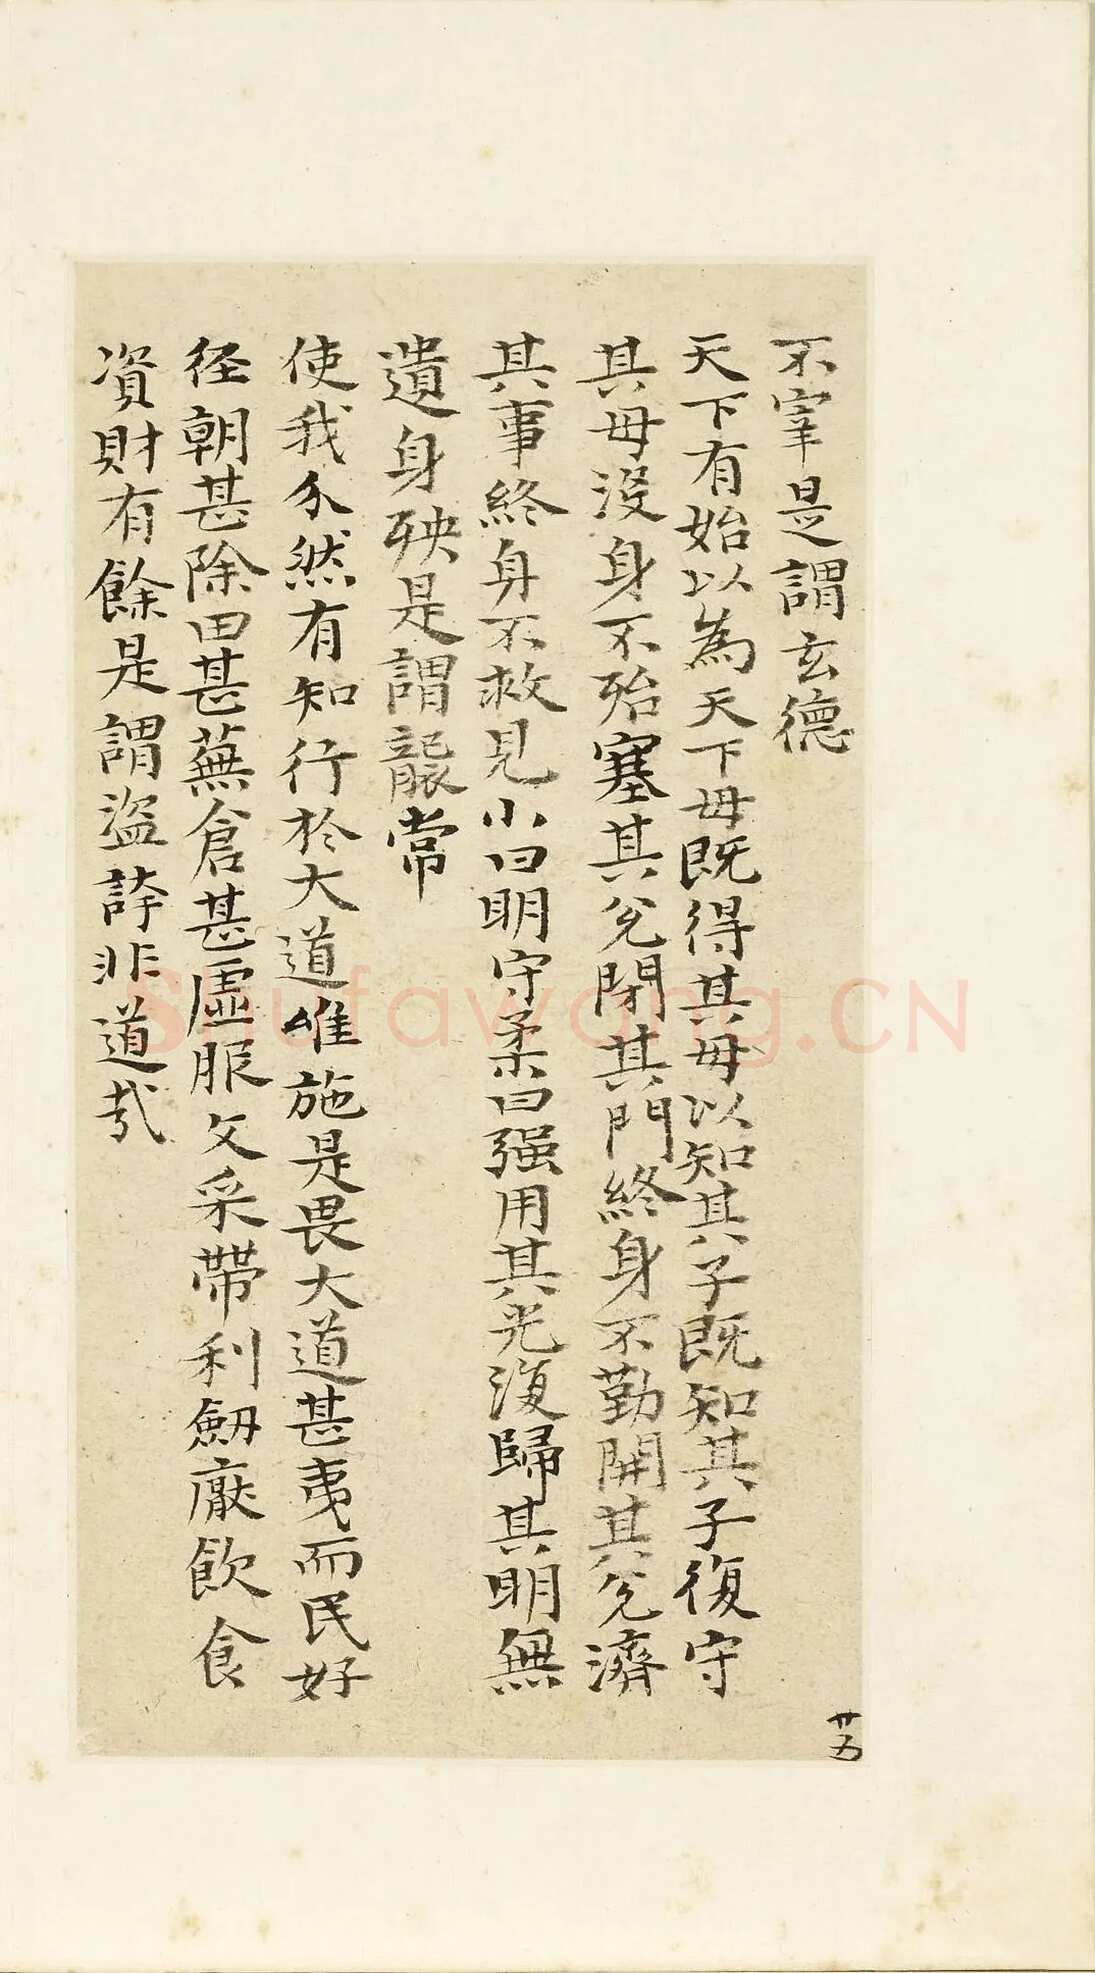 不宰是謂玄德
天下有始以為天下母既得其母以知其子既知其子復守
其母沒身不殆塞其兌閉其門終身不勤開其兌濟
其事終身不救見小曰明守柔曰强用其光復歸其明無
遺身殃是謂襲常
使我介然有知行於大道唯施是畏大道甚夷而民好
径朝甚除田甚蕪倉甚虛服文采帶利劒厭飲食
資財有餘是謂盜誇非道哉
廿五
Shufawang.CN